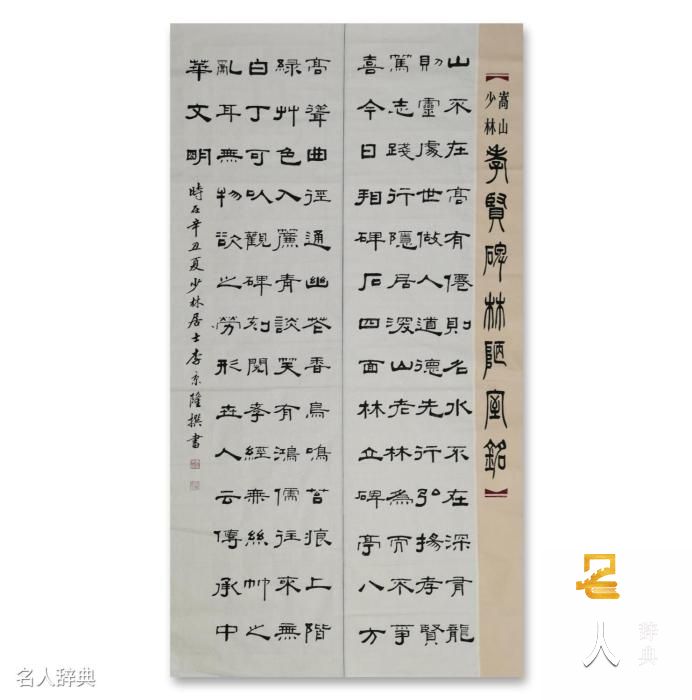 【嵩山少林孝賢碑林陋室銘】
山不在高有僊則名水不在深有龍
則靈處世做人道德先行弘揚孝賢
篤志踐行隱居深山老林為而不爭
喜今日相碑石四面林立碑亭八方
高聳曲徑通幽花香鳥鳴苔痕上階
綠艸色入簾青談笑有鴻儒往來無
白丁可以觀碑刻閱孝經無絲竹之
亂耳無物欲之勞形世人云傳承中
華文明
時在辛丑夏少林居士李京隆撰書
名人辞典
名人辞典